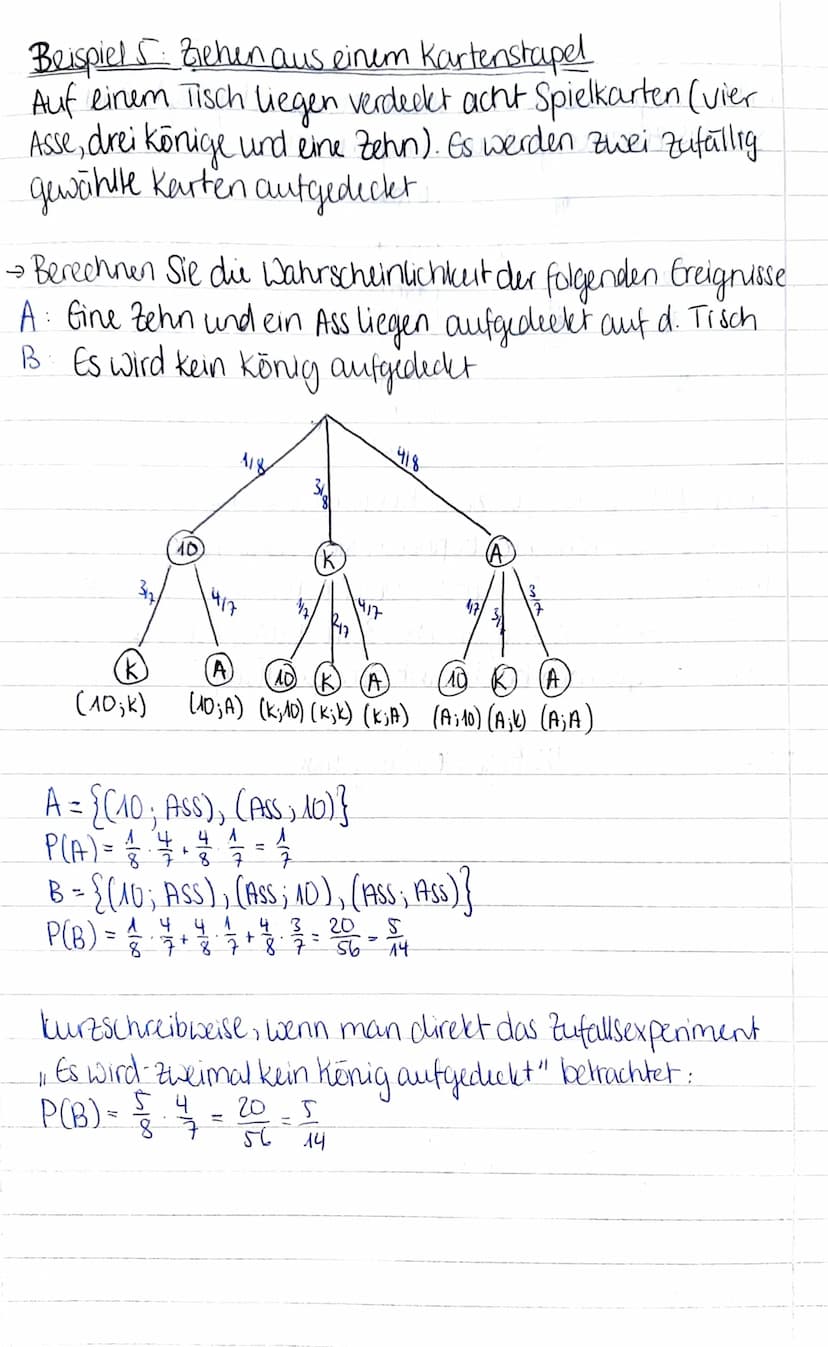 Beispiel 5: Ziehen aus einem Kartenstapel
Auf einem Tisch liegen verdeckt acht Spielkarten (vier
Asse, drei Könige und eine Zehn). Es werden zwei zufällig
gewählte Karten aufgedeckt
→ Berechnen Sie die Wahrscheinlichkeit der folgenden Ereignisse
A: Eine Zehn und ein Ass liegen aufgedeckt auf d. Tisch
B: Es wird kein König aufgedeckt
1/8 3/8 4/8
10 K A
3/7 4/7 1/7 2/7 4/7 1/7 3/7 3/7
K A 10 K A 10 K A
(10;K) (10;A) (K;10) (K;K) (K;A) (A;10) (A;K) (A;A)
A = {(10; Ass), (Ass; 10)}
P(A) = 1/8 · 4/7 + 4/8 · 1/7 = 1/7
B = {(10; Ass), (Ass; 10), (Ass; Ass)}
P(B) = 1/8 · 4/7 + 4/8 · 1/7 + 4/8 · 3/7 = 20/56 = 5/14
Kurzschreibweise, wenn man direkt das Zufallsexperiment
„Es wird zweimal kein König aufgedeckt" betrachtet:
P(B) = 5/8 · 4/7 = 20/56 = 5/14